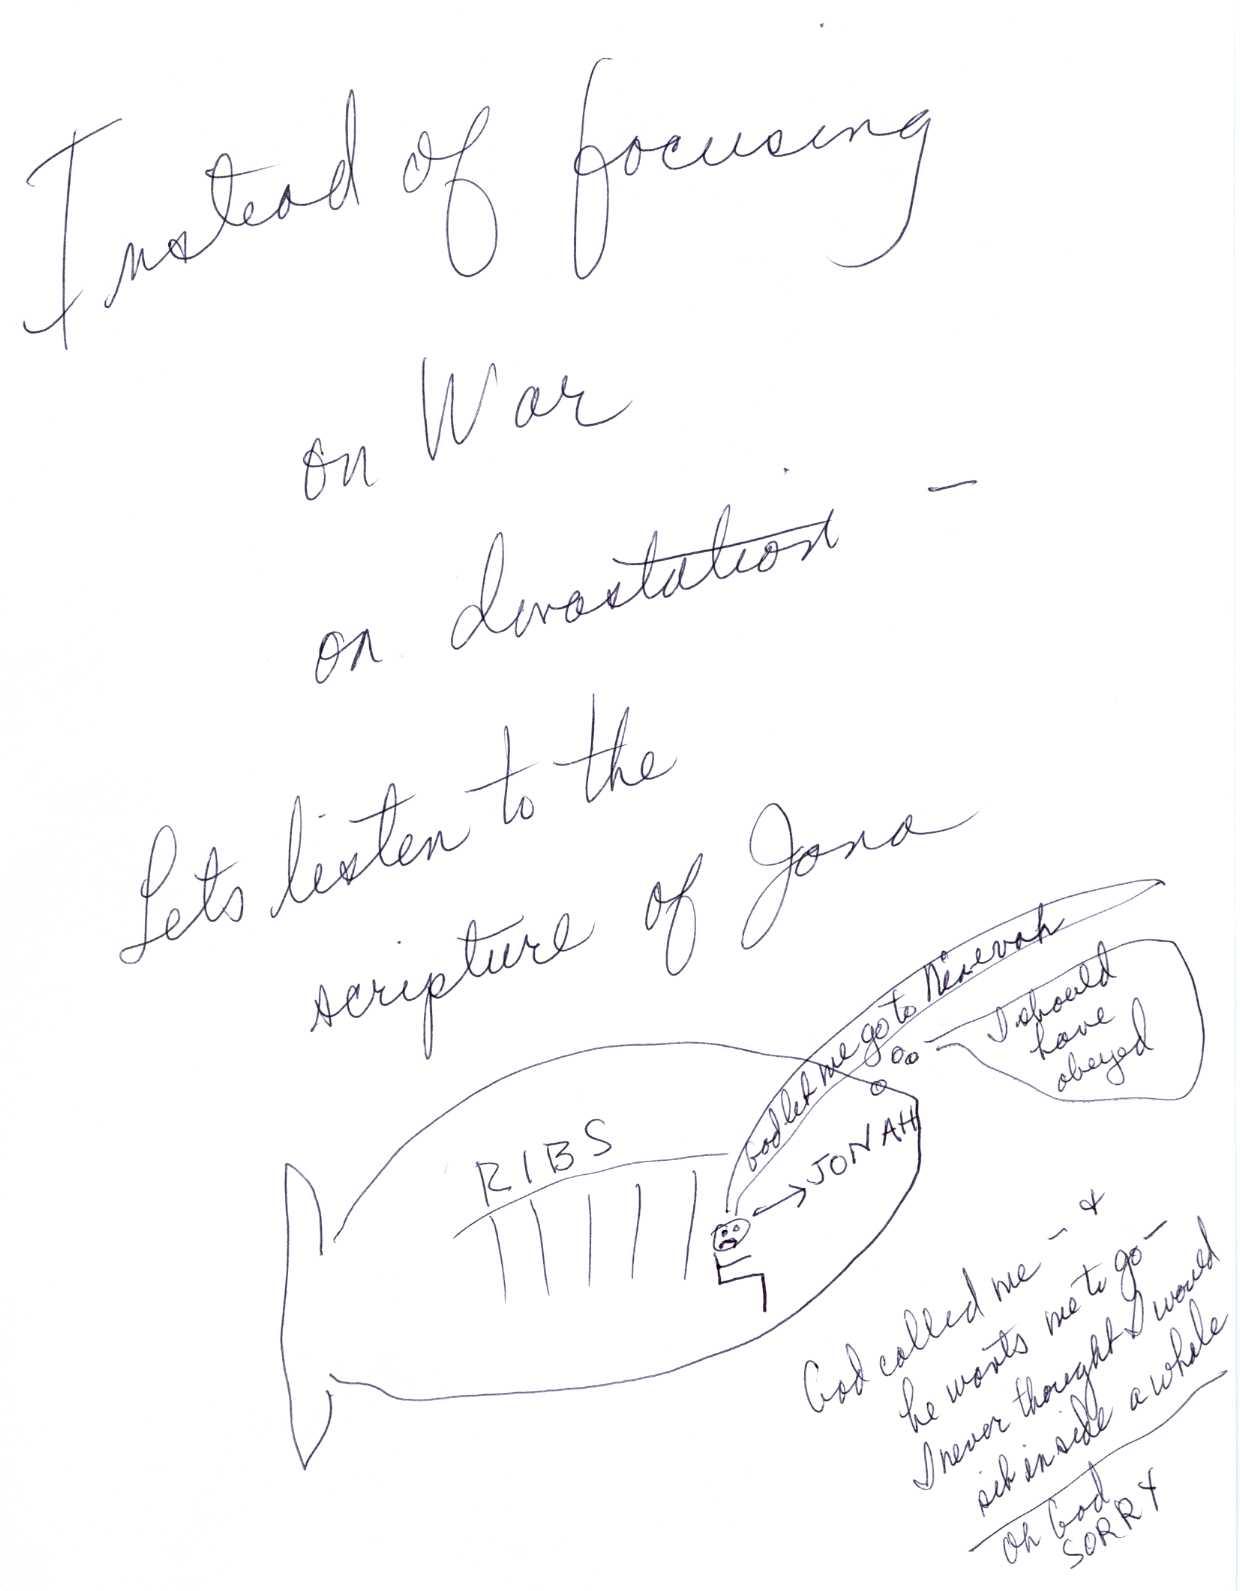 Instead of focusing
on War
on devastation -
Lets listen to the
scripture of Jona
God let me go to Ninevah
I should
have
obeyed
RIBS
JONAH
God called me - &
he wants me to go -
I never thought I would
sit inside a whale
Oh God
SORRY